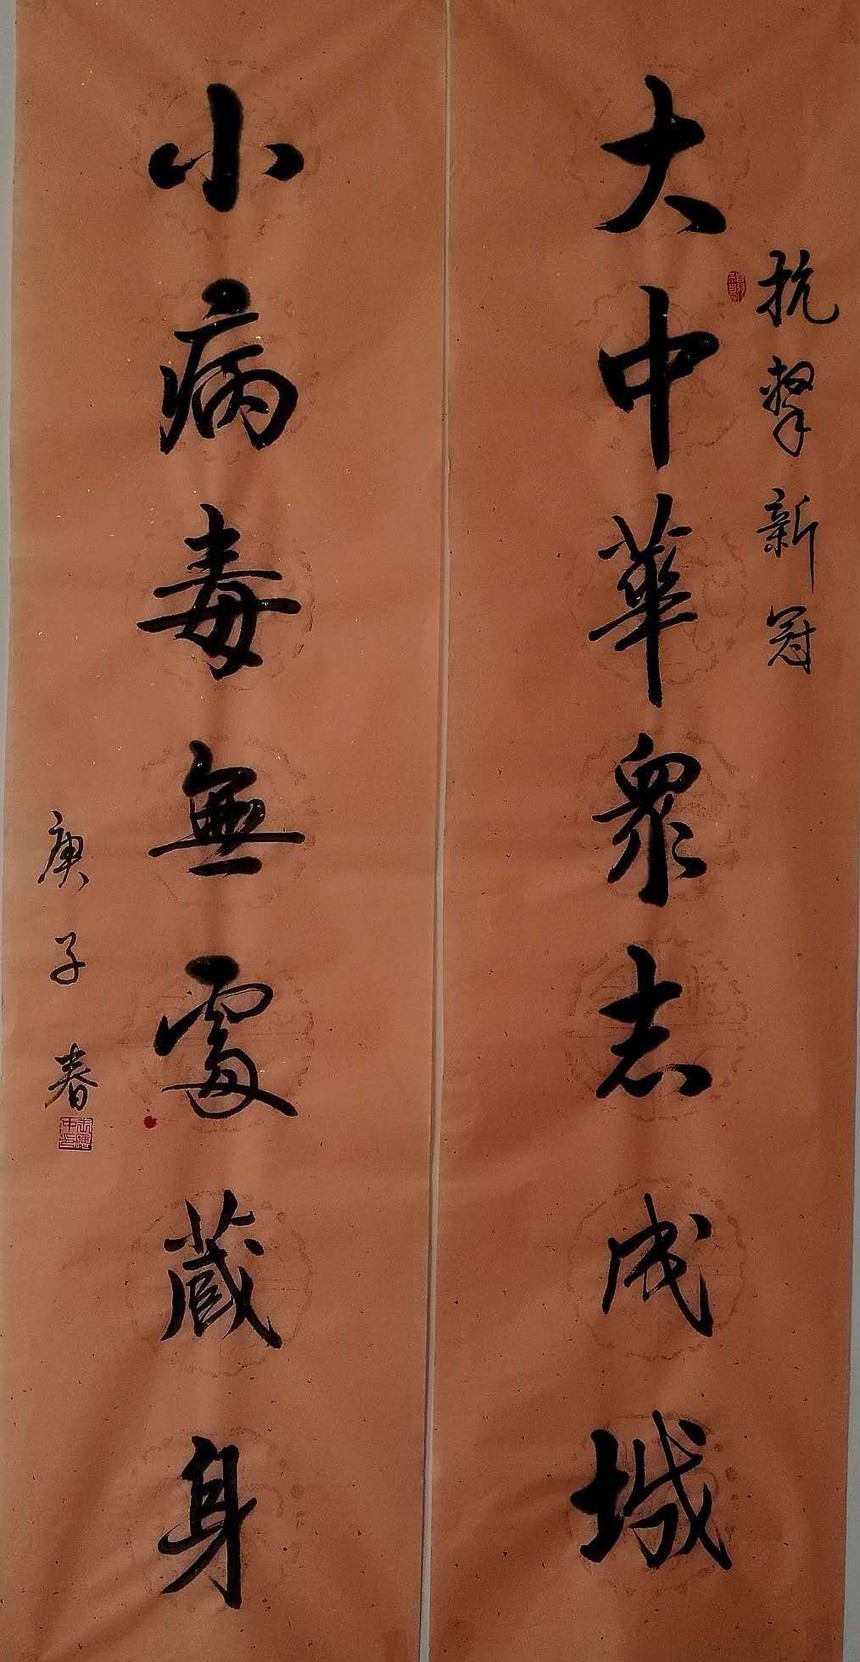 抗擊新冠
大中華眾志成城
小病毒無處藏身
庚子春